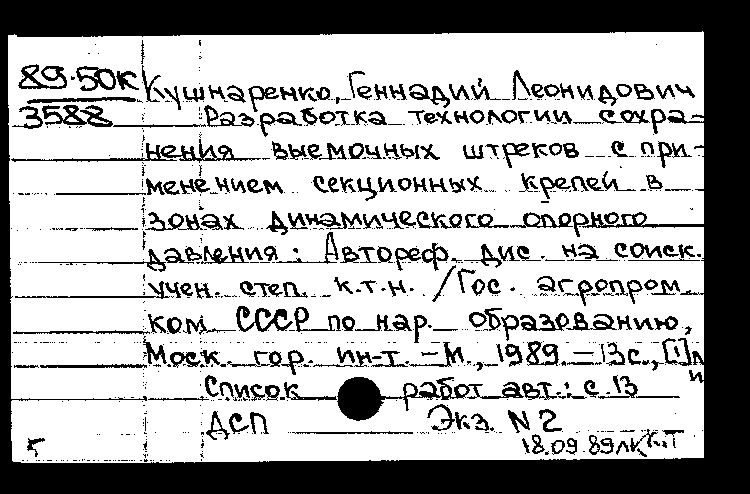 89-50К Кушнаренко, Геннадий Леонидович
3588 Разработка технологии сохра-
нения выемочных штреков с при-
менением секционных крепей в
зонах динамического опорного
давления : Автореф. дис. на соиск.
учен. степ. к.т.н. /Гос. агропром.
ком. СССР по нар. образованию,
Моск. гор. ин-т. – М., 1989. – 13 с., [1] л
Список работ авт.: с. 13
ДСП Экз. N 2
18.09.89